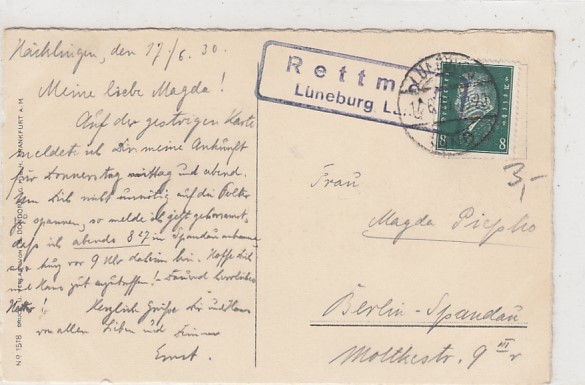 Häcklingen, den 17/6. 30.
Meine liebe Magda!
Auf der gestrigen Karte
meldete ich Dir meine Ankunft
für Donnerstag mittag und abend.
Um Dich nicht unnötig auf die Folter
zu spannen, so melde ich jetzt gehorsamst,
daß ich abends 8 27 in Spandau ankomme
also kurz vor 9 Uhr daheim bin. Hoffe Dich
und Hans gut anzutreffen!
Herzliche Grüße Dir und Hans
von allen Lieben und Deinem
Ernst.
Rettm
Lüneburg L
8 8
3,-
Frau
Magda Piepho
Berlin-Spandau
Moltkestr. 9 III r
No 1518
FRANKFURT A.M.